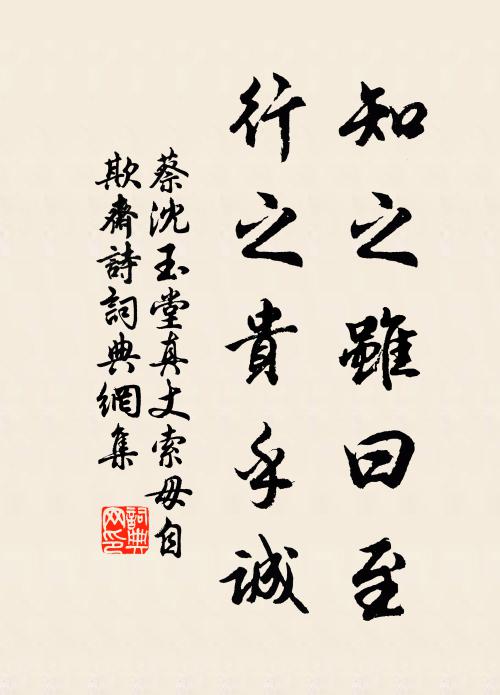 知之雖曰至
行之貴乎誠
蔡沈玉堂真丈索毋自
欺齋詩詞典網集
詞典
网印